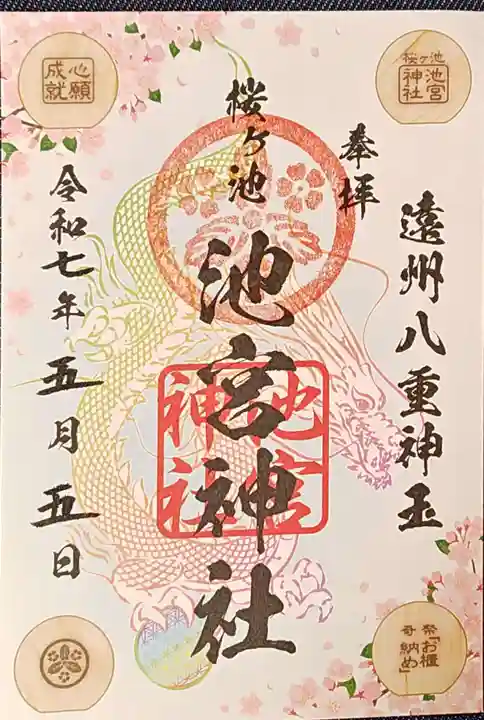 奉拝
遠州八重神玉
桜ヶ池
池宮神社
令和七年五月五日
心願
成就
桜ヶ池
池宮
神社
池宮
神社
奇祭「お櫃
納め」